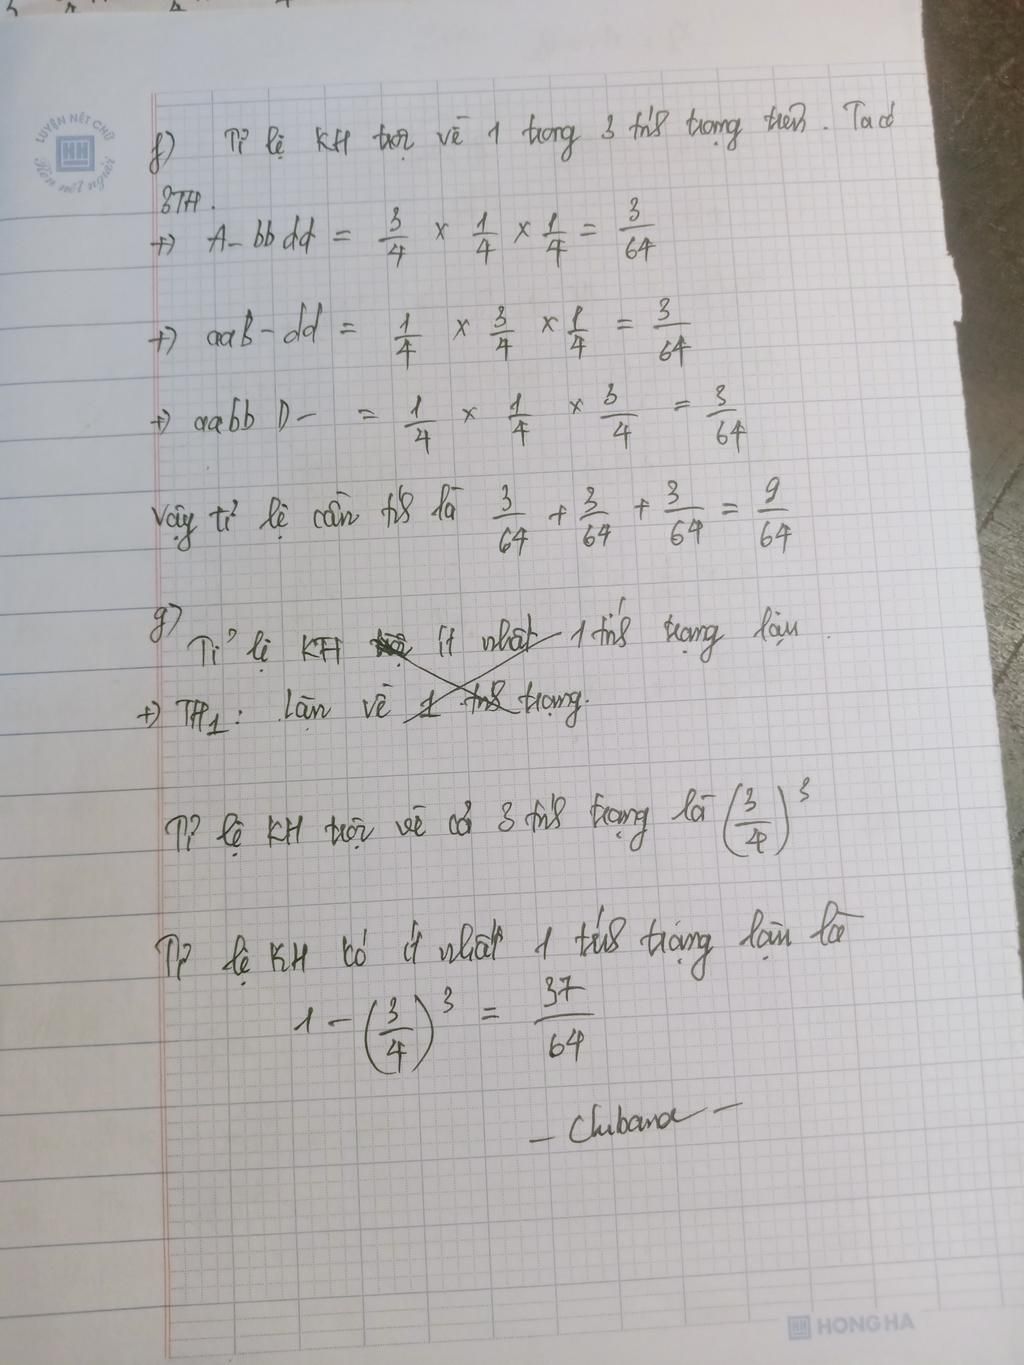 LUYỆN NÉT CHỮ
HH
Rèn nết người
f) Tỉ lệ KH trội về 1 trong 3 tính trạng trên. Ta có
3TH.
+) A-bbdd = 3/4 × 1/4 × 1/4 = 3/64
+) aaB-dd = 1/4 × 3/4 × 1/4 = 3/64
+) aabbD- = 1/4 × 1/4 × 3/4 = 3/64
Vậy tỉ lệ cần tính là 3/64 + 3/64 + 3/64 = 9/64
g)
Tỉ lệ KH ít nhất 1 tính trạng lặn.
+) TH1: lặn về 1 tính trạng.
Tỉ lệ KH trội về cả 3 tính trạng là (3/4)^3
Tỉ lệ KH có ít nhất 1 tính trạng lặn là
1 - (3/4)^3 = 37/64
- Chibana -
HH HONG HA